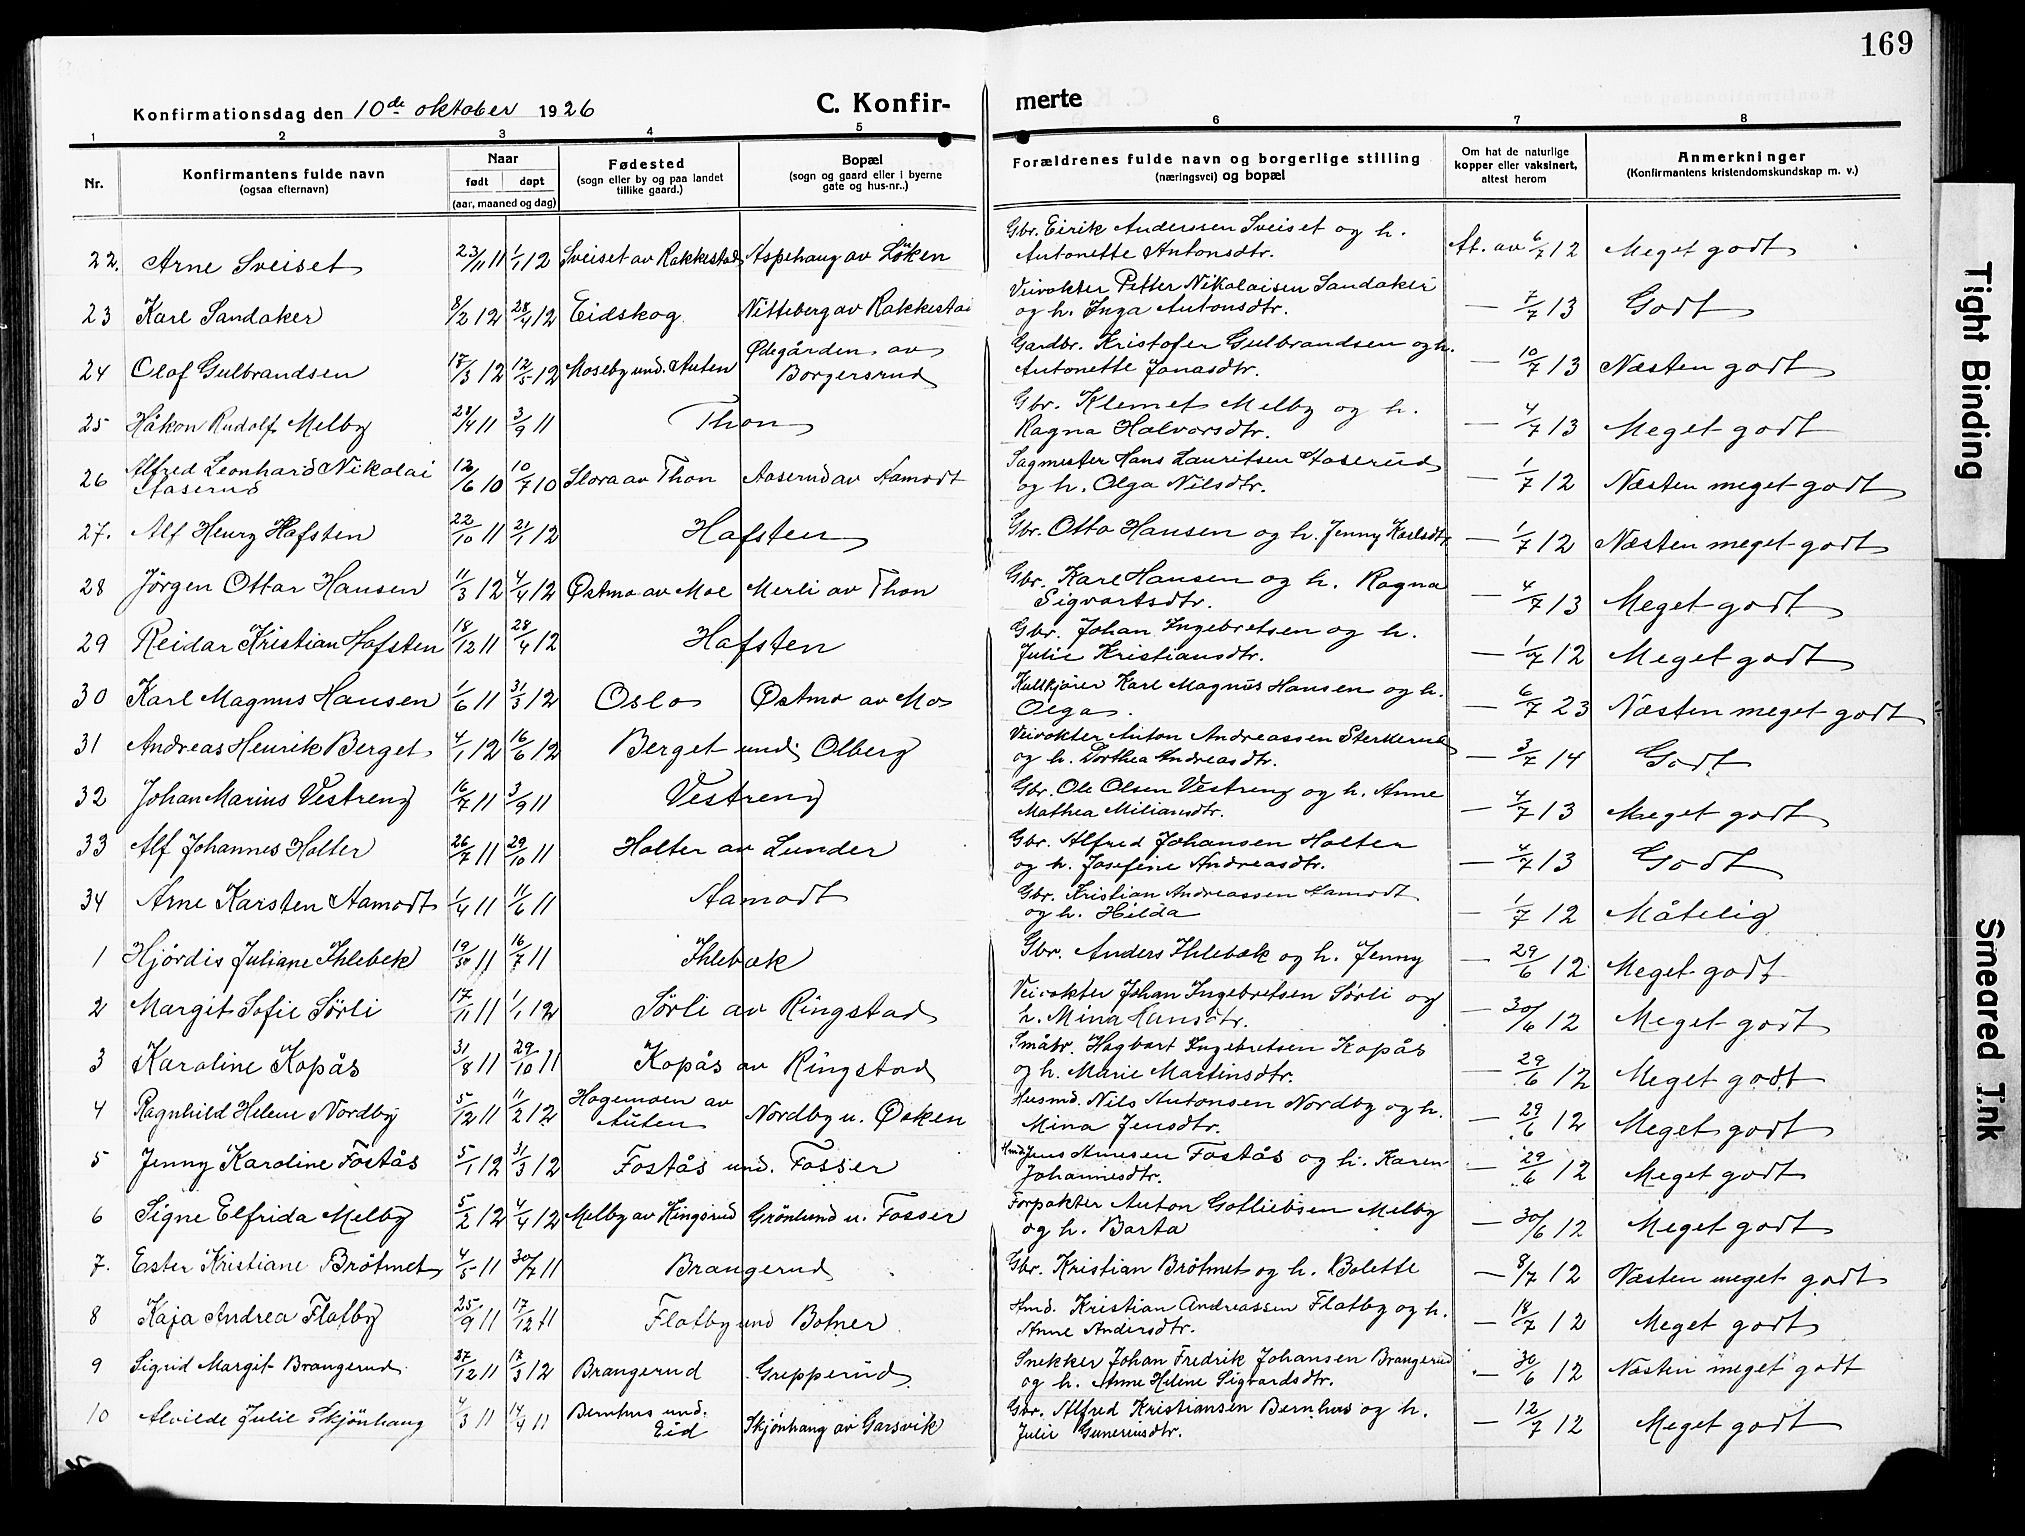 169
Konfirmationsdag den 10de oktober 1926 C. Konfir- merte
1 2 3 4 5 6 7 8
Nr. Konfirmantens fulde navn (ogsaa efternavn) Naar født døpt (aar, maaned og dag) Fødested (sogn eller by og paa landet tillike gaard.) Bopæl (sogn og gaard eller i byerne gate og hus-nr..) Forældrenes fulde navn og borgerlige stilling (næringsvei) og bopæl Om hat de naturlige kopper eller vaksinert, attest herom Anmerkninger (Konfirmantens kristendomskundskap m. v.)
22. Arne Sveiset 23/11 11 1/1 12 Sveiset av Rakkestad Aspehaug av Löken Gbr. Eirik Anderssen Sveiset og h. Antonette Antonsdtr. At. av 6/7 12 Meget godt
23 Karl Sandaker 8/2 12 28/4 12 Eidskog Nitteberg av Rakkestad Veivokter Petter Nikolaisen Sandaker og h. Inga Antonsdtr. — 7/7 13 Godt
24 Olaf Gulbrandsen 17/3 12 12/5 12 Moseby und. Auten Ødegården av Borgersrud Gardbr. Kristofer Gulbrandsen og h. Antonette Jonasdtr. — 10/7 13 Næsten godt
25 Håkon Rudolf Melby 28/4 11 3/9 11 Thon Gbr. Klemet Melby og h. Ragna Halvorsdtr. — 4/7 13 Meget godt
26 Alfred Leonhard Nikolai Aaserud 12/6 10 10/7 10 Slora av Thon Aaserud av Aamodt Sagmester Hans Lauritsen Aaserud og h. Olga Nilsdtr. — 1/7 12 Næsten meget godt
27. Alf Henry Hafsten 22/10 11 21/1 12 Hafsten Gbr. Otto Hansen og h. Jenny Karlsdtr. — 1/7 12 Næsten meget godt
28 Jörgen Ottar Hansen 11/3 12 4/4 12 Østmo av Moe Merli av Thon Gbr. Karl Hansen og h. Ragna Sigvartsdtr. — 4/7 13 Meget godt
29 Reidar Kristian Hafsten 18/12 11 28/4 12 Hafsten Gbr. Johan Ingebretsen og h. Julie Kristiansdtr. — 1/7 12 Meget godt
30 Karl Magnus Hansen 1/6 11 31/3 12 Oslo Østmo av Mo Kulkjörer Karl Magnus Hansen og h. Olga. — 6/7 23 Næsten meget godt
31 Andreas Henrik Berget 4/1 12 16/6 12 Berget und. Olberg Veivokter Anton Andreassen Sterkerud og h. Dorthea Andreasdtr. — 3/7 14 Godt
32 Johan Marius Vestreng 16/7 11 3/9 11 Vestreng Gbr. Ole Olsen Vestreng og h. Anne Mathea Miliansdtr. — 4/7 13 Meget godt
33 Alf Johannes Holter 26/7 11 29/10 11 Holter av Lunder Gbr. Alfred Johansen Holter og h. Josefine Andreasdtr. — 4/7 13 Godt
34 Arne Karsten Aamodt 1/4 11 11/6 11 Aamodt Gbr. Kristian Andreassen Aamodt og h. Hilda — 1/7 12 Måtelig
1 Hjördis Juliane Ihlebek 11 16/7 11 Ihlebæk Gbr. Anders Ihlebæk og h. Jenny — 29/6 12 Meget godt
2 Margit Sofie Sörli 17/11 11 1/1 12 Sörli av Ringstad Veivokter Johan Ingebretsen Sörli og h. Mina Hansdtr. — 30/6 12 Meget godt
3 Karoline Kopås 31/8 11 29/10 11 Kopås av Ringstad Småbr. Hagbart Ingebretsen Kopås og h. Marie Martinsdtr. — 29/6 12 Meget godt
4 Ragnhild Helene Nordby 5/12 11 11/2 12 Hagemoen av Auten Nordby u. Øsken Husmd. Nils Antonsen Nordby og h. Mina Jensdtr. — 29/6 12 Meget godt
5 Jenny Karoline Fostås 5/1 12 31/3 12 Fostås und. Fosser Hmd. Jens Arnesen Fostås og h. Karen Johannesdtr. — 29/6 12 Meget godt
6 Signe Elfrida Melby 5/2 12 4/4 12 Melby av Kingsrud Grönlund u. Fosser Forpakter Anton Gotliebsen Melby og h. Barta — 30/6 12 Meget godt
7. Ester Kristiane Brötmet 4/5 11 30/7 11 Brangerud Gbr. Kristian Brötmet og h. Bolette — 8/7 12 Næsten meget godt
8 Kaja Andrea Flatby 25/9 11 17/12 11 Flatby und Botner Hmd. Kristian Andreassen Flatby og h. Anne Andersdtr. — 18/7 12 Meget godt
9 Sigrid Margit Brangerud 27/12 11 17/3 12 Brangerud Grepperud Snekker Johan Fredrik Johansen Brangerud og h. Anne Helene Sigvardsdtr. — 30/6 12 Næsten meget godt
10 Alvilde Julie Skjönhaug 4/3 11 17/4 11 Bernhus und. Eid Skjönhaug av Garsvik Gbr. Alfred Kristiansen Bernhus og h. Julie Gunereusdtr. — 12/7 12 Meget godt
Tight Binding
Smeared Ink